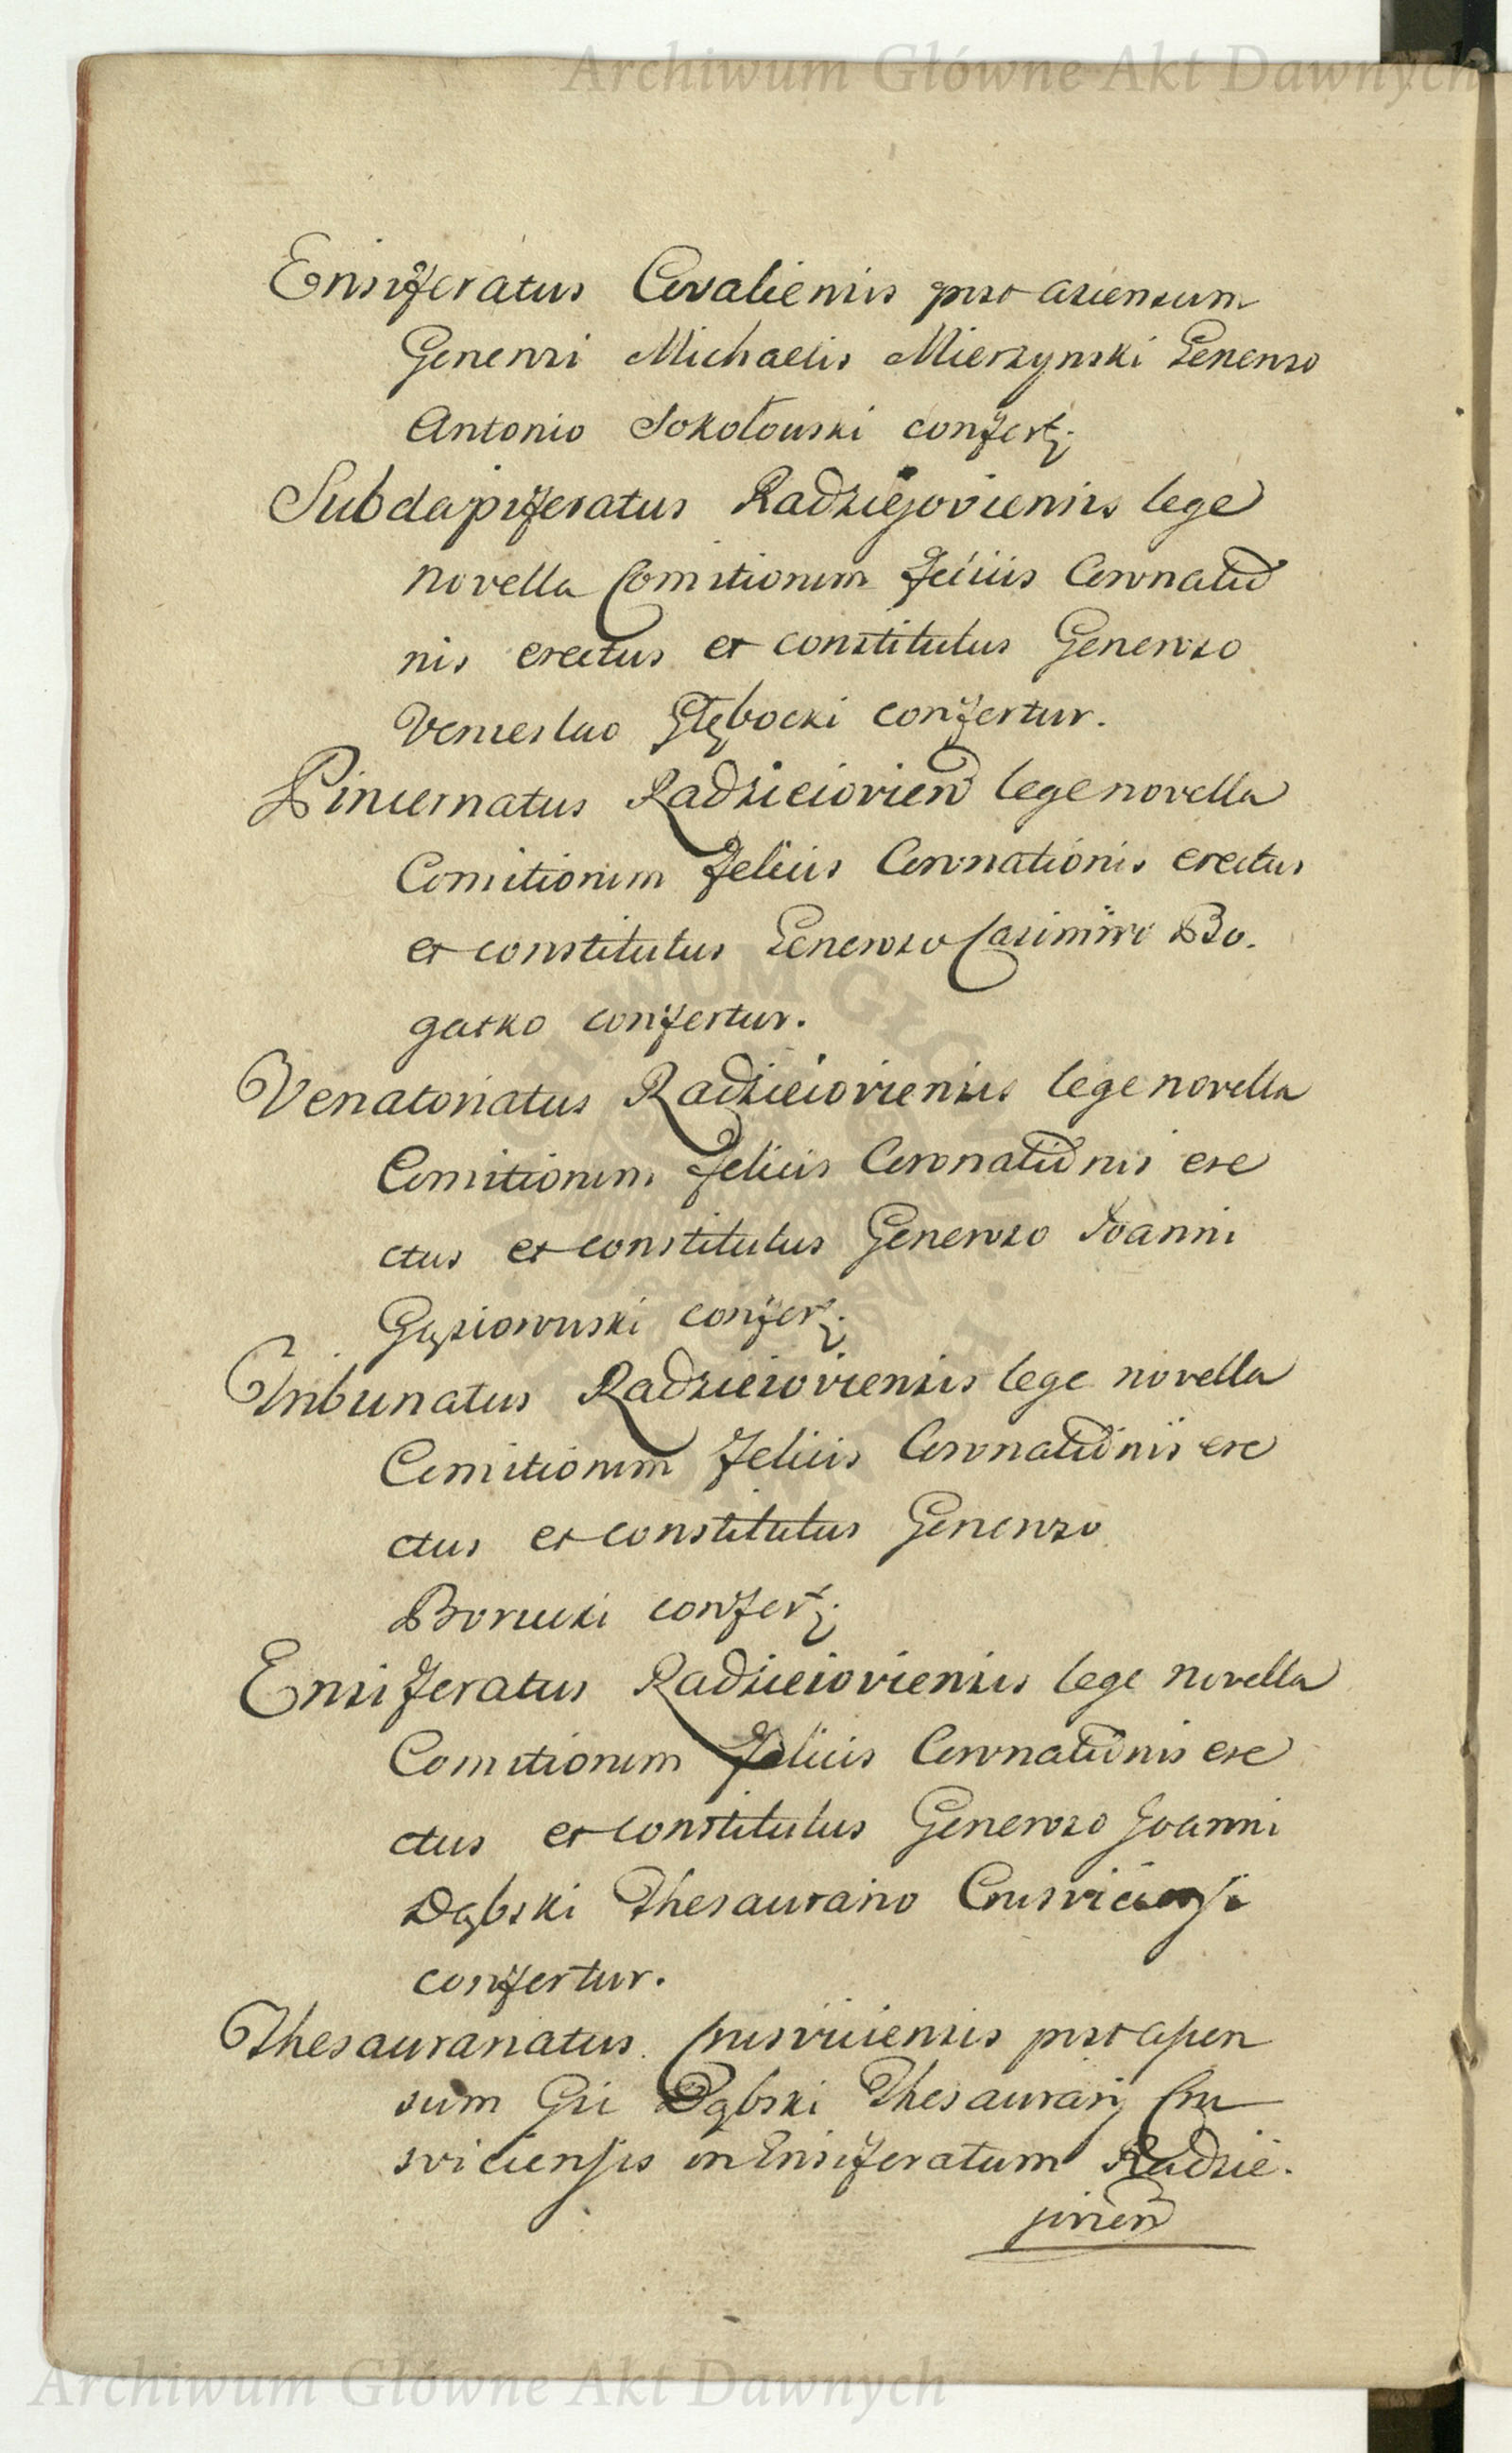 Archiwum Główne Akt Dawnych
Ensiferatus Covaliensis post ascensum
Generosi Michaelis Mierzynski Generoso
Antonio Sokołowski confert.
Subdapiferatus Radziejoviensis lege
novella Comitiorum felicis Coronatio
nis erectus et constitutus Generoso
Venceslao Głębocki confertur.
Pincernatus Radzieiovien lege novella
Comitiorum felicis Coronationis erectus
et constitutus Generoso Casimiro Bo.
gatko confertur.
Venatoriatus Radzieioviensis lege novella
Comitiorum felicis Coronationis ere
ctus et constitutus Generoso Joanni
Gąsiorowski confert.
Tribunatus Radzieioviensis lege novella
Comitiorum felicis Coronationis ere
ctus et constitutus Generoso
Borucki confert.
Ensiferatus Radzieioviensis lege novella
Comitiorum felicis Coronationis ere
ctus et constitutus Generoso Joanni
Dąbski Thesaurario Crusviciensi
confertur.
Thesaurariatus Crusviciensis post ascen
sum Gsi Dąbski Thesaurarij Cru
sviciensis in Ensiferatum Radzie.
jovien
Archiwum Główne Akt Dawnych